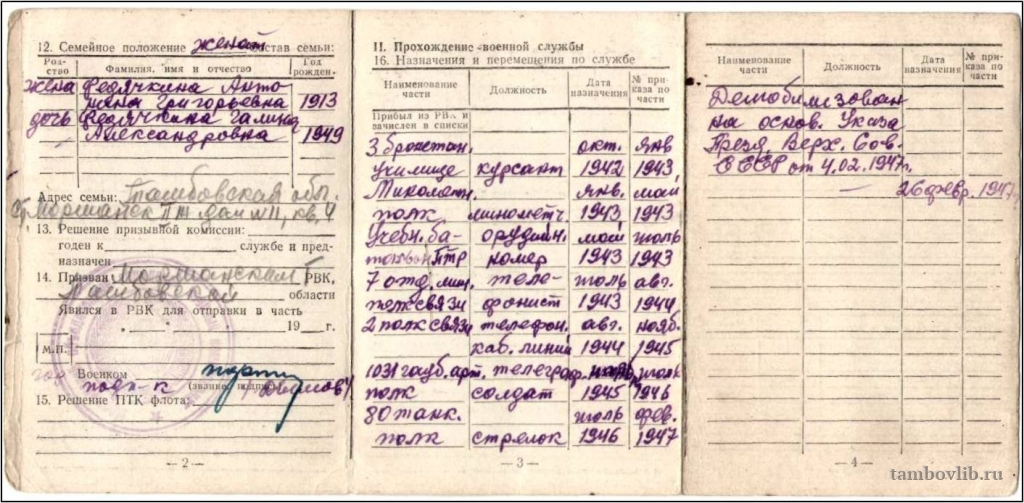 12. Семейное положение женат Состав семьи:
Род-ство Фамилия, имя и отчество Год рожден.
жена Федячкина Анто
нина Григорьевна 1913
дочь Федячкина Галина
Александровна 1949
Адрес семьи: Тамбовская обл.
Моршанск дом №11, кв. 4
13. Решение призывной комиссии:
годен к службе и пред-
назначен
14. Призван Моршанским РВК,
Тамбовской области
Явился в РВК для отправки в часть
19 г.
М.П.
Военком
подп-к (звание, подпись)
15. Решение ПТК флота:
— 2 —
II. Прохождение военной службы
16. Назначения и перемещения по службе
Наименование части Должность Дата назначения № при-каза по части
Прибыл из РВК и
зачислен в списки
3 бронетан. окт. янв
училище курсант 1942 1943
Миномет. янв. май
полк минометч. 1943 1943
Учебн. ба- орудийн. май июль
тальон ПТР номер 1943 1943
7 отд. лин. теле- июль авг.
полк связи фонист 1943 1944
2 полк связи телефон. авг. нояб.
каб. линий 1944 1945
1031 гауб. арт. телеграф. июль
полк солдат 1945 1946
80 танк. июль фев.
полк стрелок 1946 1947
— 3 —
Наименование части Должность Дата назначения № при-каза по части
Демобилизован
на основ. Указа
През. Верх. Сов.
СССР от 4.02.1947г.
— 26 февр. 1947г
— 4 —
tambovlib.ru